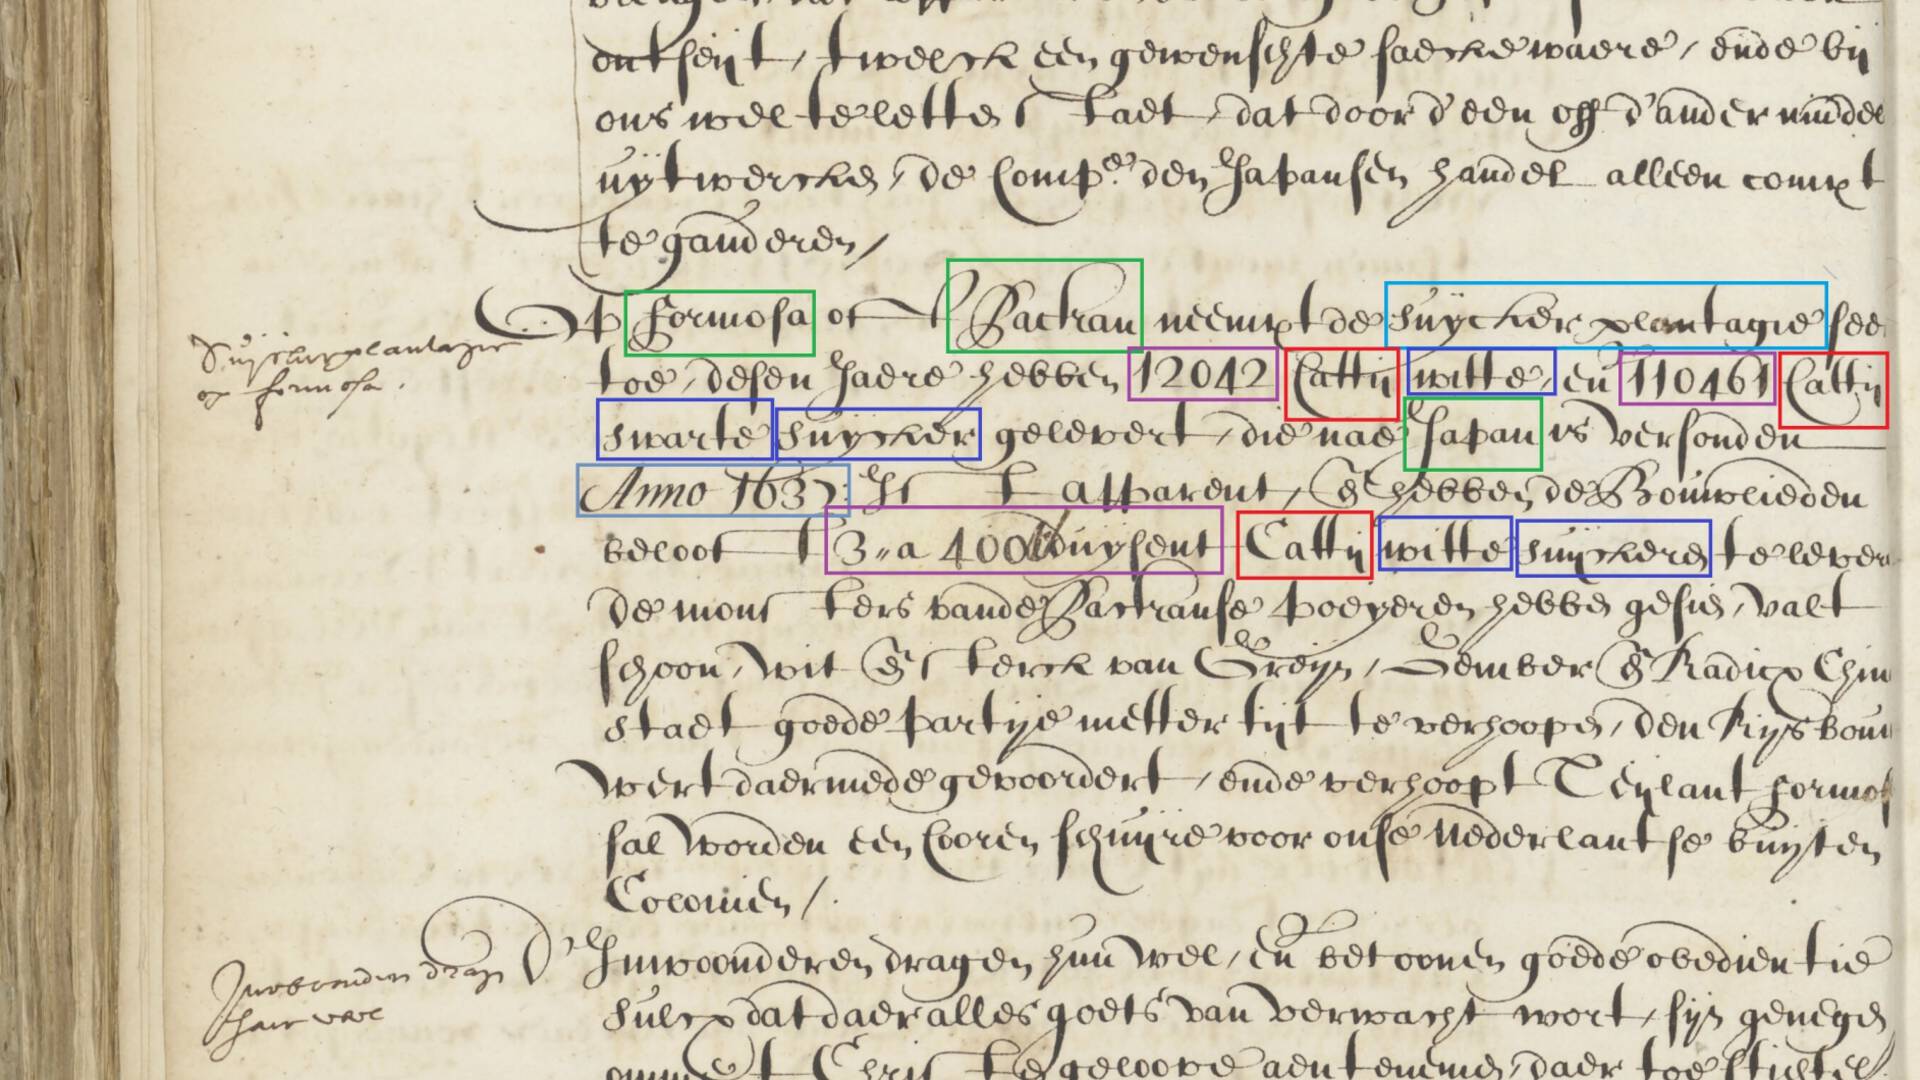 ontseijt, twelck een gewenschte saecke waere, ende bij
ons wel te letten staet, dat door d'een off d'ander middel
uijtwercken, de Comp.e den Japansen handel alleen compt
te gauderen,
Suijckerplantagie
op formosa.
Op formosa oft Packan neempt de suijcker plantagie seer
toe, desen Jaere hebben 12042 Cattij witte, en 110461 Cattij
swarte suijcker gelevert, die nae Japan is versonden
Anno 1637: Ist apparent, en hebben de Bouwlieden
belooft 3 „a 400 duijsent Cattij witte suijckeren te lever
de monsters vande Packanse poeyeren hebben gesien, valt
schoon, wit en sterck van Greijn, Gember en Radix Chin
staet goede partije metter tijt te verhoopen, den Rijsbouw
wert daermede gevoordert, ende verhoopt T'eijlant formos
sal worden een Cooren schuijre voor onse Nederlantse buijten
Colonien /.
Inwoonderen dragen
haer wel
D' Inwoonderen dragen hun wel, en betoonen goede obedientie
sulcx dat daer alles goets van verwacht wort, sijn genegen
omme t Christen geloove aen te nemen, daer toe